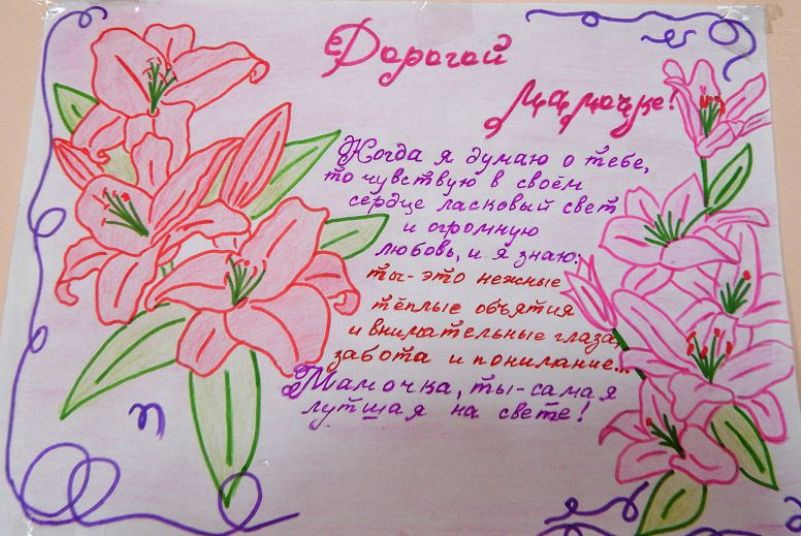 Дорогой
мамочке!
Когда я думаю о тебе,
то чувствую в своём
сердце ласковый свет
и огромную
любовь, и я знаю:
ты - это нежные
тёплые объятия
и внимательные глаза,
забота и понимание...
Мамочка, ты - самая
лутшая на свете!